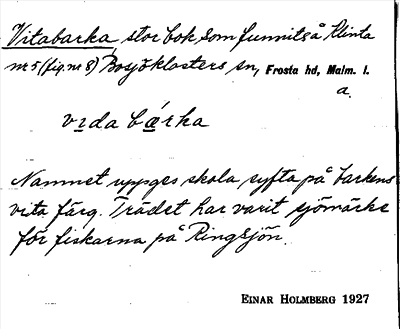 Vitabarka, stor bok, som funnits å Klinta
nr 5 (fig. nr 8) Bosjöklosters sn, Frosta hd, Malm. l.
a.
vɪda bɑrka
Namnet uppges skola syfta på barkens
vita färg. Trädet har varit sjömärke
för fiskarna på Ringsjön.
EINAR HOLMBERG 1927